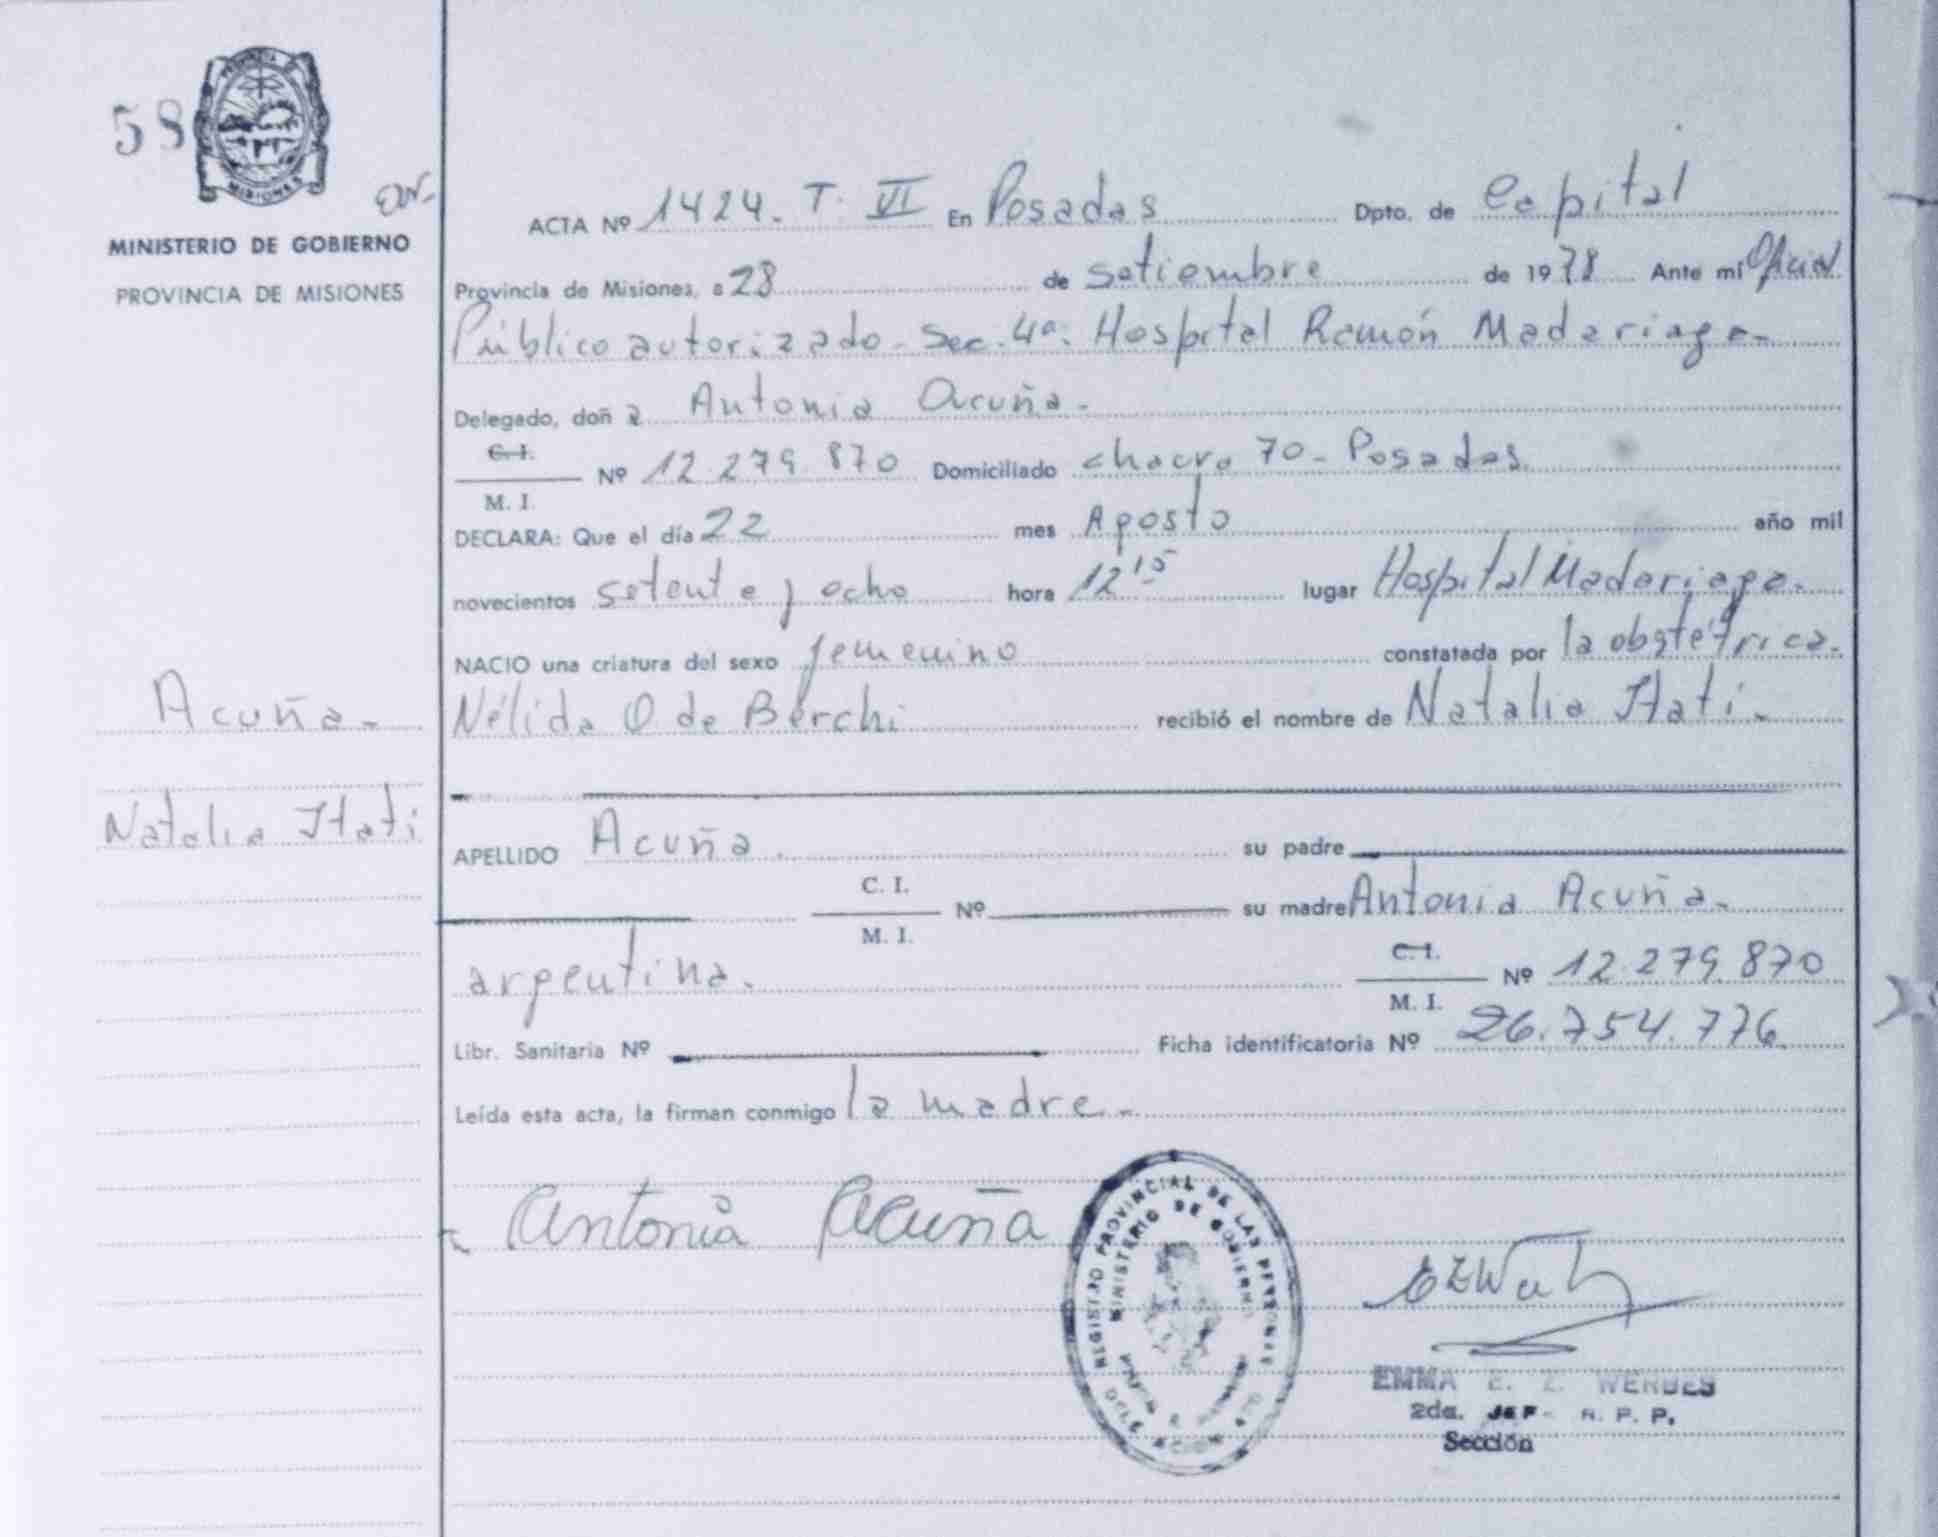 58
PROVINCIA DE
MISIONES
MINISTERIO DE GOBIERNO
PROVINCIA DE MISIONES
Acuña.-
Natalia Itatí
ACTA Nº 1424. T. VI En Posadas Dpto. de Capital
Provincia de Misiones, a 28 de setiembre de 1978 Ante mí Oficial
Público autorizado - Sec. 4a: Hospital Ramón Madariaga.-
Delegado, doña Antonia Acuña.-
C. I.
Nº 12.279.870 Domiciliado chacra 70 - Posadas
M. I.
DECLARA: Que el día 22 mes Agosto año mil
novecientos setenta y ocho hora 12 15 lugar Hospital Madariaga.-
NACIO una criatura del sexo femenino constatada por la obstétrica.-
Nélida O de Berchi recibió el nombre de Natalia Itatí.-
APELLIDO Acuña. su padre
C. I.
Nº su madre Antonia Acuña.-
M. I.
argentina. C. I. Nº 12.279.870
M. I.
Libr. Sanitaria Nº Ficha identificatoria Nº 26.754.776
Leída esta acta, la firman conmigo la madre.-
Antonia Acuña
REGISTRO PROVINCIAL DE LAS PERSONAS
MINISTERIO DE GOBIERNO
EMMA E. Z. WERBES
2da. JEF- R. P. P.
Sección